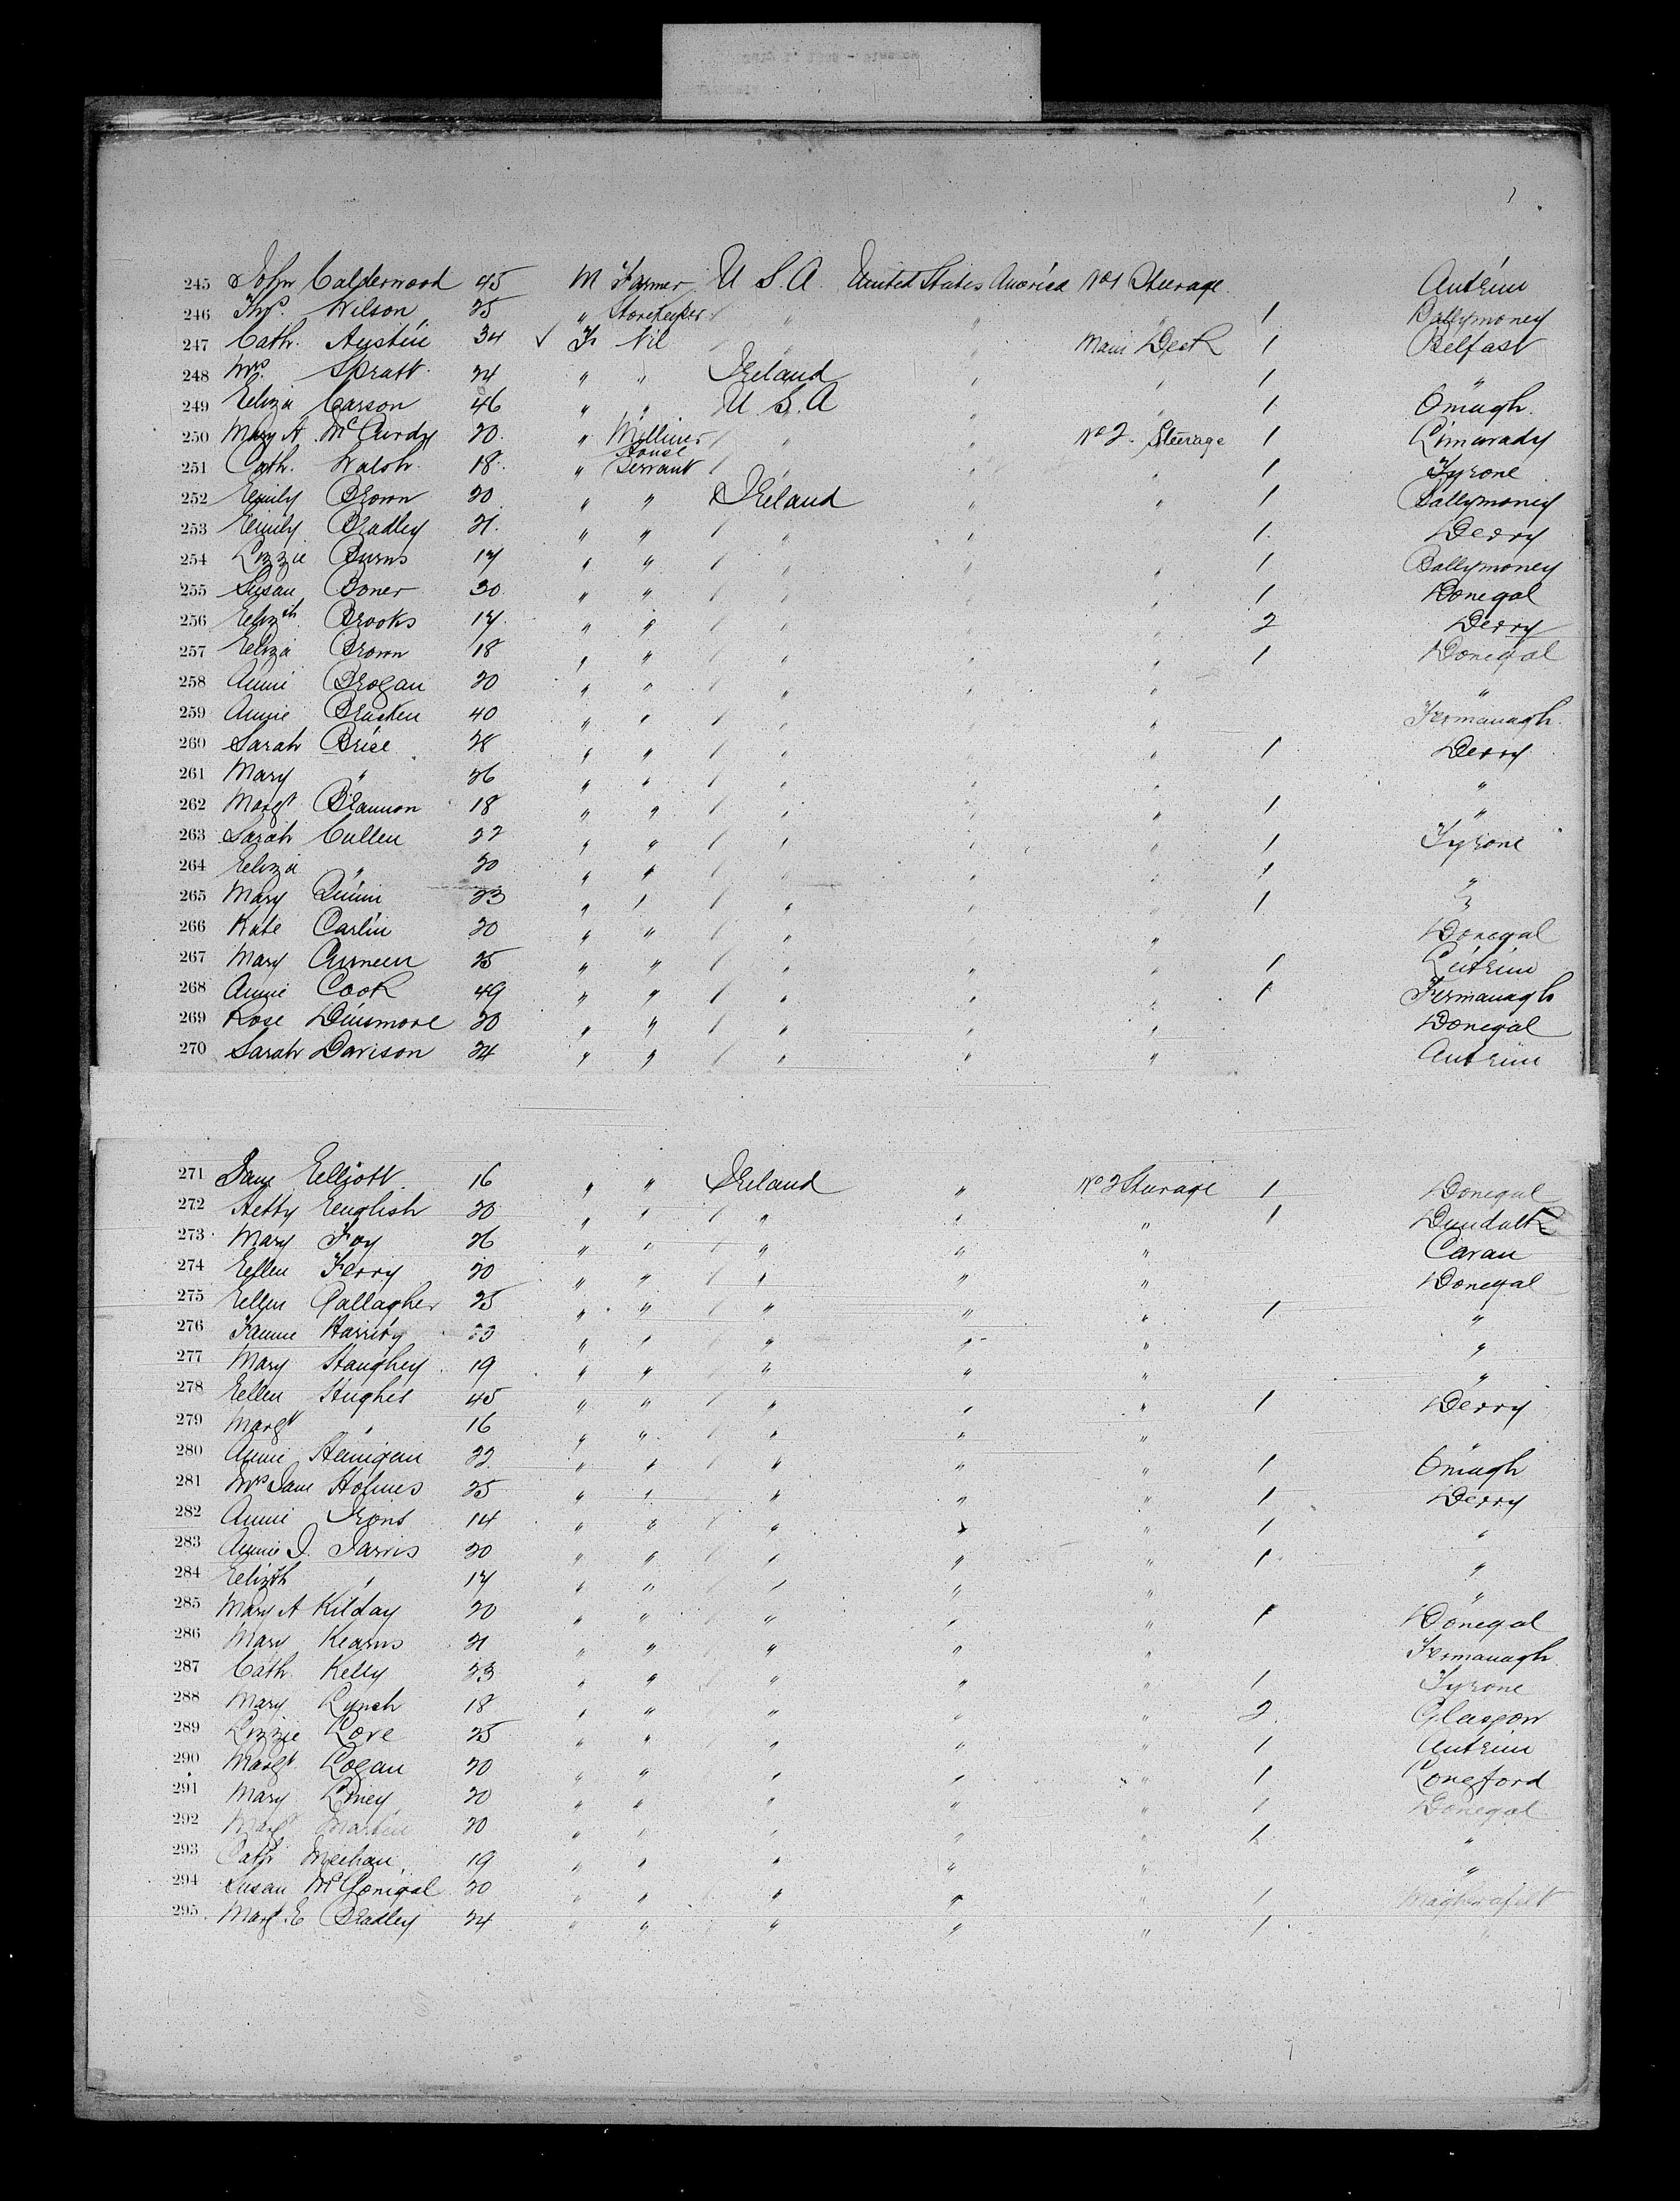 245 John Calderwood 45 M Farmer U S. A. United States America No 1 Steerage Antrim
246 Thos. Wilson 25 " Storekeeper " " " 1 Ballymoney
247 Cath. Austin 34 √ F Nil " " Main Deck 1 Belfast
248 Mrs. Spratt 24 " " Ireland " " 1 "
249 Eliza Carson 46 " " U. S. A " " 1 Omagh.
250 Mary A McCurdy 20. " Milliner " " No 2. Steerage 1 Limavady
251 Cath. Walsh 18. " House Servant " " " 1 Tyrone
252 Emily Brown 20 " " Ireland " " 1 Ballymoney
253 Emily Bradley 21. " " " " " 1. Derry
254 Lizzie Burns 17 " " " " " 1 Ballymoney
255 Susan Boner 30. " " " " " 1 Donegal
256 Elizth Brooks 17. " " " " " 2 Derry
257 Eliza Brown 18 " " " " " 1 Donegal
258 Annie Brogan 20 " " " " " "
259 Annie Bracken 40 " " " " " Fermanagh.
260 Sarah Brice 28 " " " " " 1 Derry
261 Mary " 26 " " " " " "
262 Margt Brannon 18 " " " " " 1 "
263 Sarah Cullen 22 " " " " " 1 Tyrone
264 Eliza " 20 " " " " " 1 "
265 Mary Quinn 23 " " " " " 1 "
266 Kate Carlin 20 " " " " " Donegal
267 Mary 25 " " " " " 1 Leitrim
268 Annie Cook 49 " " " " " 1 Fermanagh
269 Rose Dinsmore 20 " " " " " Donegal
270 Sarah Davison 24 " " " " " Antrim
271 Jane Elliott. 16 " " Ireland " No 2 Sturage 1 Donegal
272 Hetty English 20 " " " " " 1 Dundalk
273 Mary Foy 26 " " " " " Cavan
274 Ellen Ferry 20 " " " " " Donegal
275 Ellen Gallagher 25 " " " " " 1 "
276 Fannie " " " " " "
277 Mary Haughey 19 " " " " " "
278 Ellen Hughes 45 " " " " " 1 Derry
279 Margt " 16 " " " " " "
280 Annie Hannigan 22 " " " " " 1 Omagh
281 Mrs Jane Holmes 25 " " " " " 1 Derry
282 Annie Irons 14 " " " " " 1 "
283 Annie J. Jarvis 20 " " " " " 1 "
284 Elizth " 17 " " " " " "
285 Mary A Kilday 20 " " " " " 1 Donegal
286 Mary Kearns 21 " " " " " Fermanagh
287 Cath. Kelly 23 " " " " " 1 Tyrone
288 Mary Lynch 18 " " " " " 2 Glasgow
289 Lizzie Love 25 " " " " " 1 Antrim
290 Margt. Logan 20 " " " " " 1 Longford
291 Mary 20 " " " " " 1 Donegal
292 Margt Martin 20 " " " " " 1 "
293 Cath Meehan 19 " " " " " "
294 Susan McGonigal 20 " " " " " 1 Magherafelt
295 Margt. E Bradley 24 " " " " " 1 "